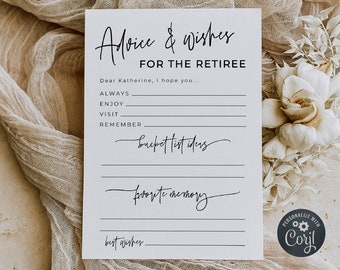 Advice & wishes
FOR THE RETIREE
Dear Katherine, I hope you...
ALWAYS
ENJOY
VISIT
REMEMBER
bucket list ideas
favorite memory
best wishes
PERSONALIZE WITH
Corjl